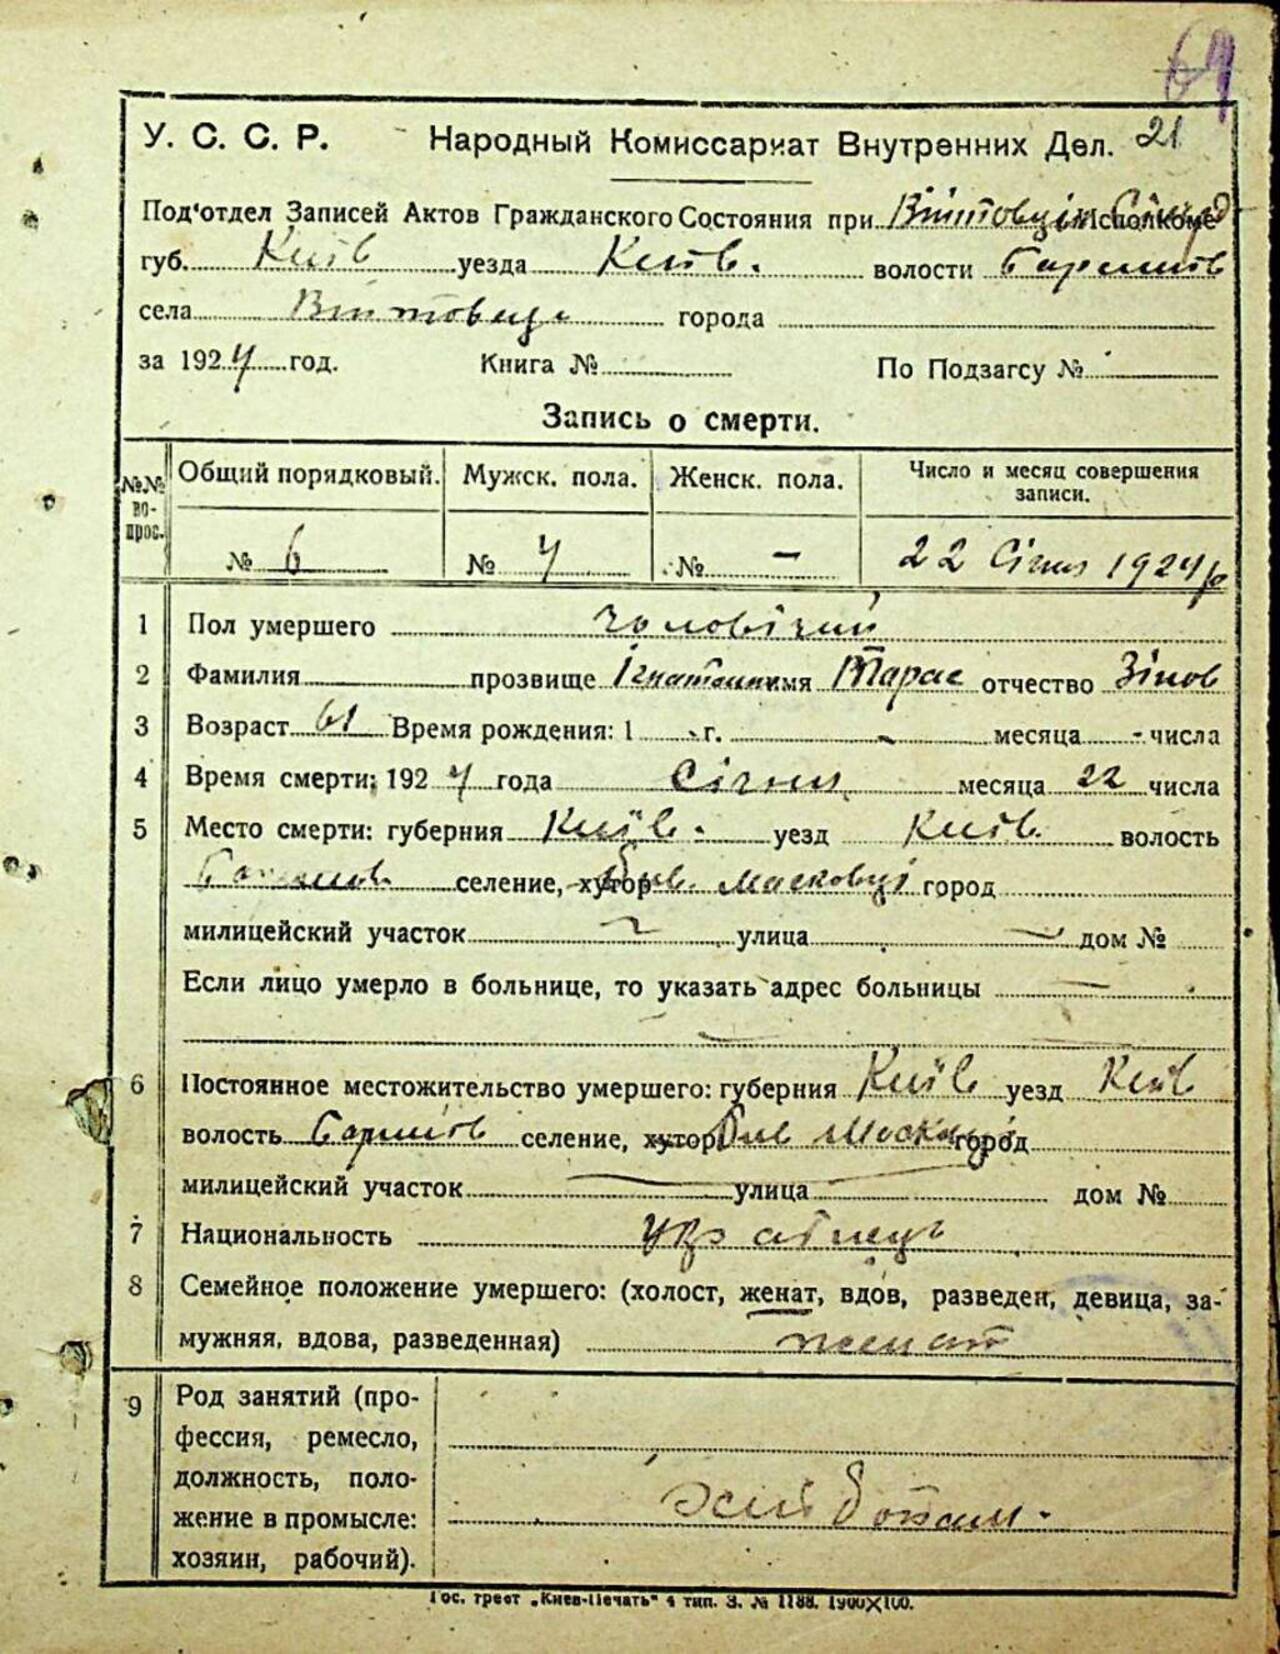 64
У. С. С. Р. Народный Комиссариат Внутренних Дел. 21
Под'отдел Записей Актов Гражданского Состояния при Исполкоме
губ. Київ уезда Київ. волости
села Війтовци города
за 1924 год. Книга № По Подзагсу №
Запись о смерти.
№№ вопрос. Общий порядковый. Мужск. пола. Женск. пола. Число и месяц совершения записи.
№ 6 № 4 № — 22 Січня 1924 р
1 Пол умершего чоловічий
2 Фамилия прозвище имя Тарас отчество Зінов
3 Возраст 61 Время рождения: 1 г. месяца - числа
4 Время смерти: 1924 года Січня месяца 22 числа
5 Место смерти: губерния Київ. уезд Київ. волость
селение, хутор Масковці город
милицейский участок улица дом №
Если лицо умерло в больнице, то указать адрес больницы —
6 Постоянное местожительство умершего: губерния Київ уезд Київ
волость селение, хутор город
милицейский участок улица дом №
7 Национальность
8 Семейное положение умершего: (холост, женат, вдов, разведен, девица, за-
мужняя, вдова, разведенная) женат
9 Род занятий (про-
фессия, ремесло,
должность, поло-
жение в промысле:
хозяин, рабочий).
Гос. трест „Киев-Печать" 4 тип. З. № 1188. 1900×100.